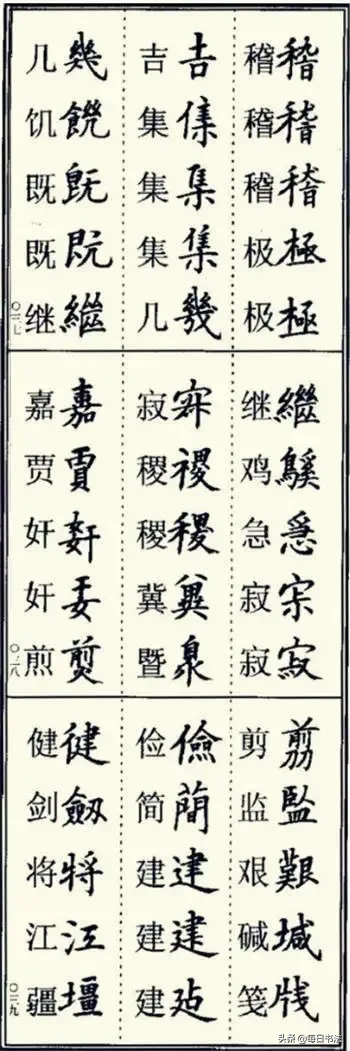 稽稽 稽稽 稽稽 极極 极極
吉吉 集 集集 集集 几幾
几幾 饥饑 既旣 既既 继繼
〇三七
继繼 鸡 急 寂 寂寂
寂 稷 稷稷 冀 暨
嘉嘉 贾賈 奸 奸 煎
〇三八
剪 监監 艰艱 碱堿 笺牋
俭儉 简蕳 建建 建建 建
健 剑劔 将将 江江 疆壃
〇三九
头条 @每日书法